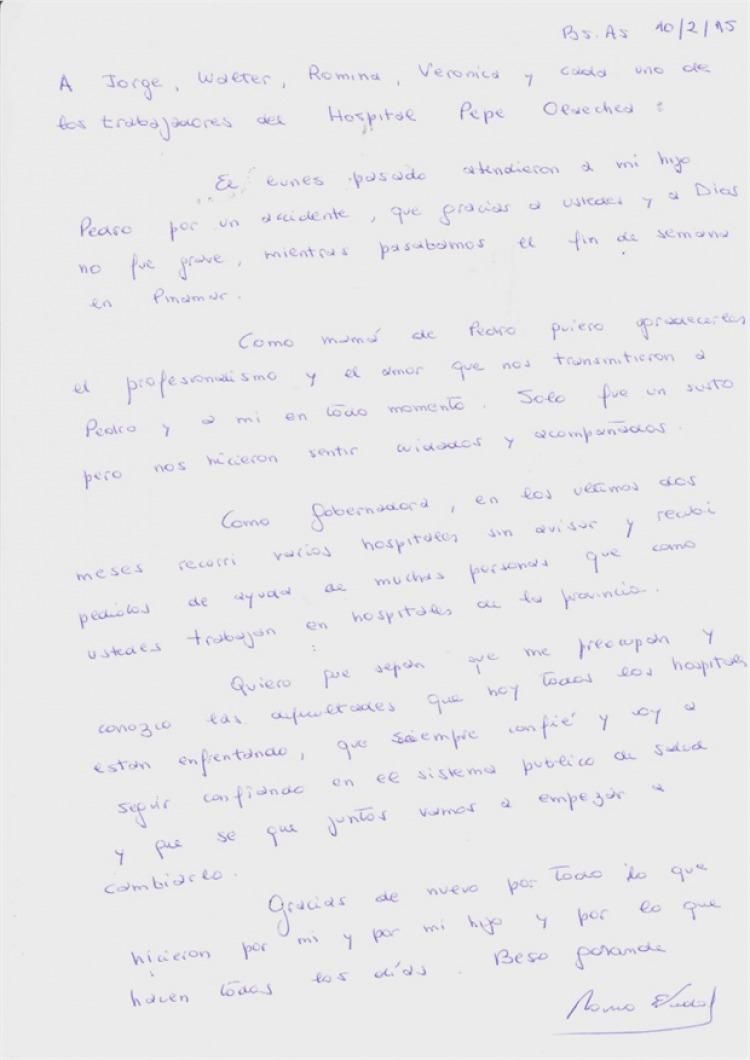 Bs. As 10/2/15
A Jorge, Walter, Romina, Veronica y cada uno de
los trabajadores del Hospital Pepe Olaechea:
El lunes pasado atendieron a mi hijo
Pedro por un accidente, que gracias a ustedes y a Dios
no fue grave, mientras pasabamos el fin de semana
en Pinamar.
Como mamá de Pedro quiero agradecerles
el profesionalismo y el amor que nos transmitieron a
Pedro y a mi en todo momento. Solo fue un susto
pero nos hicieron sentir cuidados y acompañados.
Como gobernadora, en los ultimos dos
meses recorri varios hospitales sin avisar y recibi
pedidos de ayuda de muchas personas que como
ustedes trabajan en hospitales de la provincia.
Quiero que sepan que me preocupan y
conozco las dificultades que hoy todos los hospitales
estan enfrentando, que siempre confié y voy a
seguir confiando en el sistema publico de salud
y que se que juntos vamos a empezar a
cambiarlo.
Gracias de nuevo por todo lo que
hicieron por mi y por mi hijo y por lo que
hacen todos los días. Beso grande